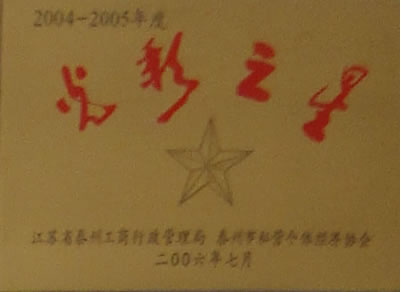 2004-2005年度
光彩之星
江苏省泰州工商行政管理局 泰州市私营个体经济协会
二00六年七月